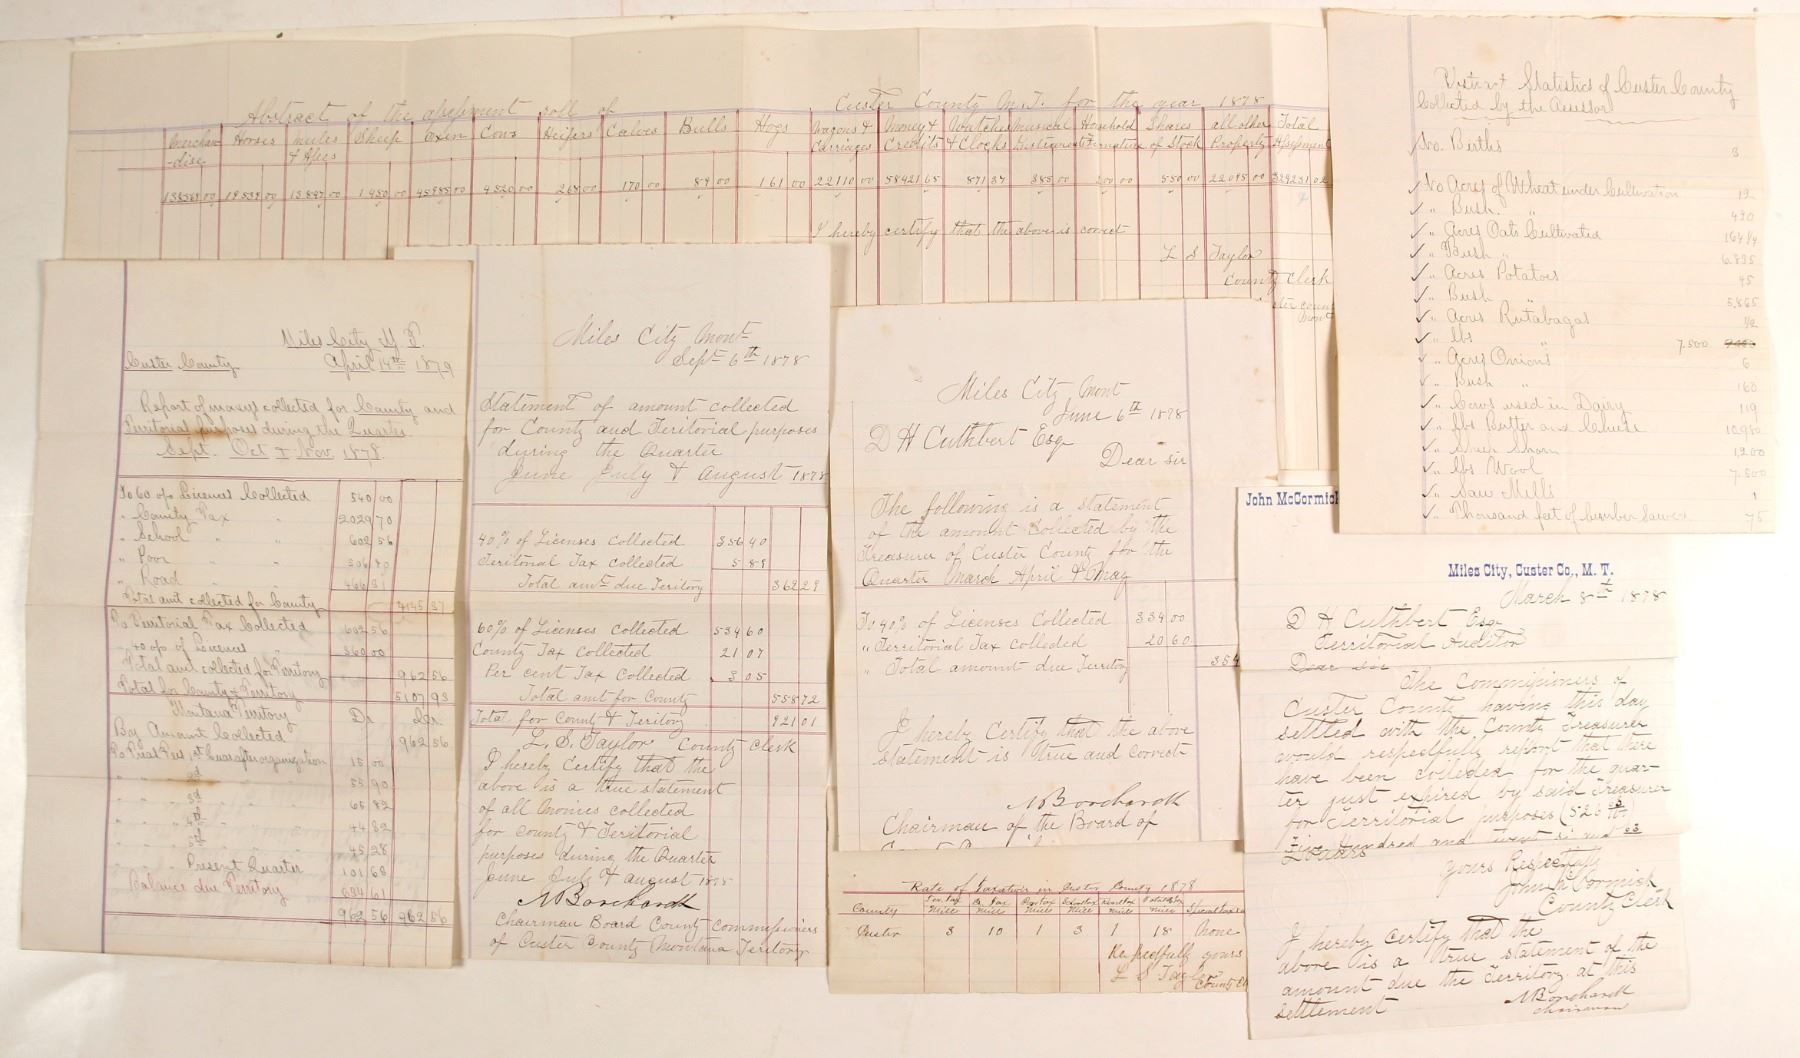 Abstract of the assessment roll of Custer County M.T. for the year 1878
Merchan-dise Horses Mules & Asses Sheep Oxen Cows Heifers Calves Bulls Hogs Wagons & Carriages Money & Credits Watches & Clocks Musical Instruments Household Furniture Shares of Stock all other Property Total Assessment
19539.00 1.450.00 45985.00 4520.00 268.00 170 00 89 00 161 00 22110 00 58421 65 871 37 385.00 200 00 550 00 22095 00 329251 02
I hereby certify that the above is correct
L S Taylor
County Clerk
Statistics of Custer County
Collected by the Assessor
No. Births 3
No Acres of Wheat under Cultivation 12
" Bush. " 430
" Acres Oats Cultivated 164 3/4
" Bush " 6.835
" Acres Potatoes 45
" Bush " 5.865
" Acres Rutabagas 1/2
" lbs " 7.500
" Acres Onions 6
" Bush " 160
" Cows used in Dairy 119
" lbs Butter and Cheese 10980
" Sheep Shorn 1200
" lbs Wool 7.500
" Saw Mills 1
" Thousand feet of lumber Sawed 75
Miles City M.T.
Custer County April 14th 1879
Report of moneys collected for County and
Territorial purposes during the Quarter
Sept. Oct & Nov 1878
To 60 o/o Licenses Collected 540 00
" County Tax " 2029 70
" School " " 602 56
" Poor " " 506 80
" Road " " 466 31
Total amt collected for County 4145 37
To Territorial Tax Collected 602 56
" 40 o/o of Licenses " 360 00
Total amt collected for Territory 962 56
Total for County & Territory 5107 93
Montana Territory Dr Cr.
By Amount Collected 962 56
To Treas Fees 1st Quar after organization 15 00
" " " 2d " " 55 90
" " " 3d " " 65 82
" " " 4th " " 44 82
" " " 5th " " 45 28
" " " Present Quarter 101 68
Balance due Territory 634 61
962 56 962 56
Miles City Mont
Sept 6th 1878
Statement of amount collected
for County and Territorial purposes
during the Quarter
June July & August 1878
40% of Licenses collected 356 40
Territorial Tax collected 5 89
Total amt due Territory 362 29
60% of Licenses collected 534 60
County Tax collected 21 07
Per cent Tax collected 3 05
Total amt for County 558 72
Total for County & Territory 921 01
L. S. Taylor County Clerk
I hereby Certify that the
above is a true statement
of all monies collected
for County & Territorial
purposes during the Quarter
June July & August 1878
N Borchardt
Chairman Board County Commissioners
of Custer County Montana Territory
Miles City Mont
June 6th 1878
D H Cuthbert Esq
Dear sir
The following is a statement
of the amount Collected by the
Treasurer of Custer County for the
Quarter March April & May
To 40% of Licenses Collected 334 00
" Territorial Tax collected 20 60
" Total amount due Territory 354
I hereby Certify that the above
statement is true and correct
N Borchardt
Chairman of the Board of
Rate of Taxation in Custer County 1878
County
Custer 3 10 1 3 1 18 None
Respectfully yours
L S Taylor
County Cl
John McCormick
Miles City, Custer Co., M. T.
March 8th 1878
D H Cuthbert Esq
Territorial Auditor
Dear sir
The Commissioners of
Custer County having this day
settled with the County Treasurer
would respectfully report that there
have been collected for the quar-
ter just expired by said Treasurer
for Territorial purposes (526 53/100)
Five Hundred and twent six and 53
Dollars
Yours Respectfully
John McCormick
County Clerk
I hereby certify that the
above is a true statement of the
amount due the Territory at this
settlement
N Borchardt
Chairman